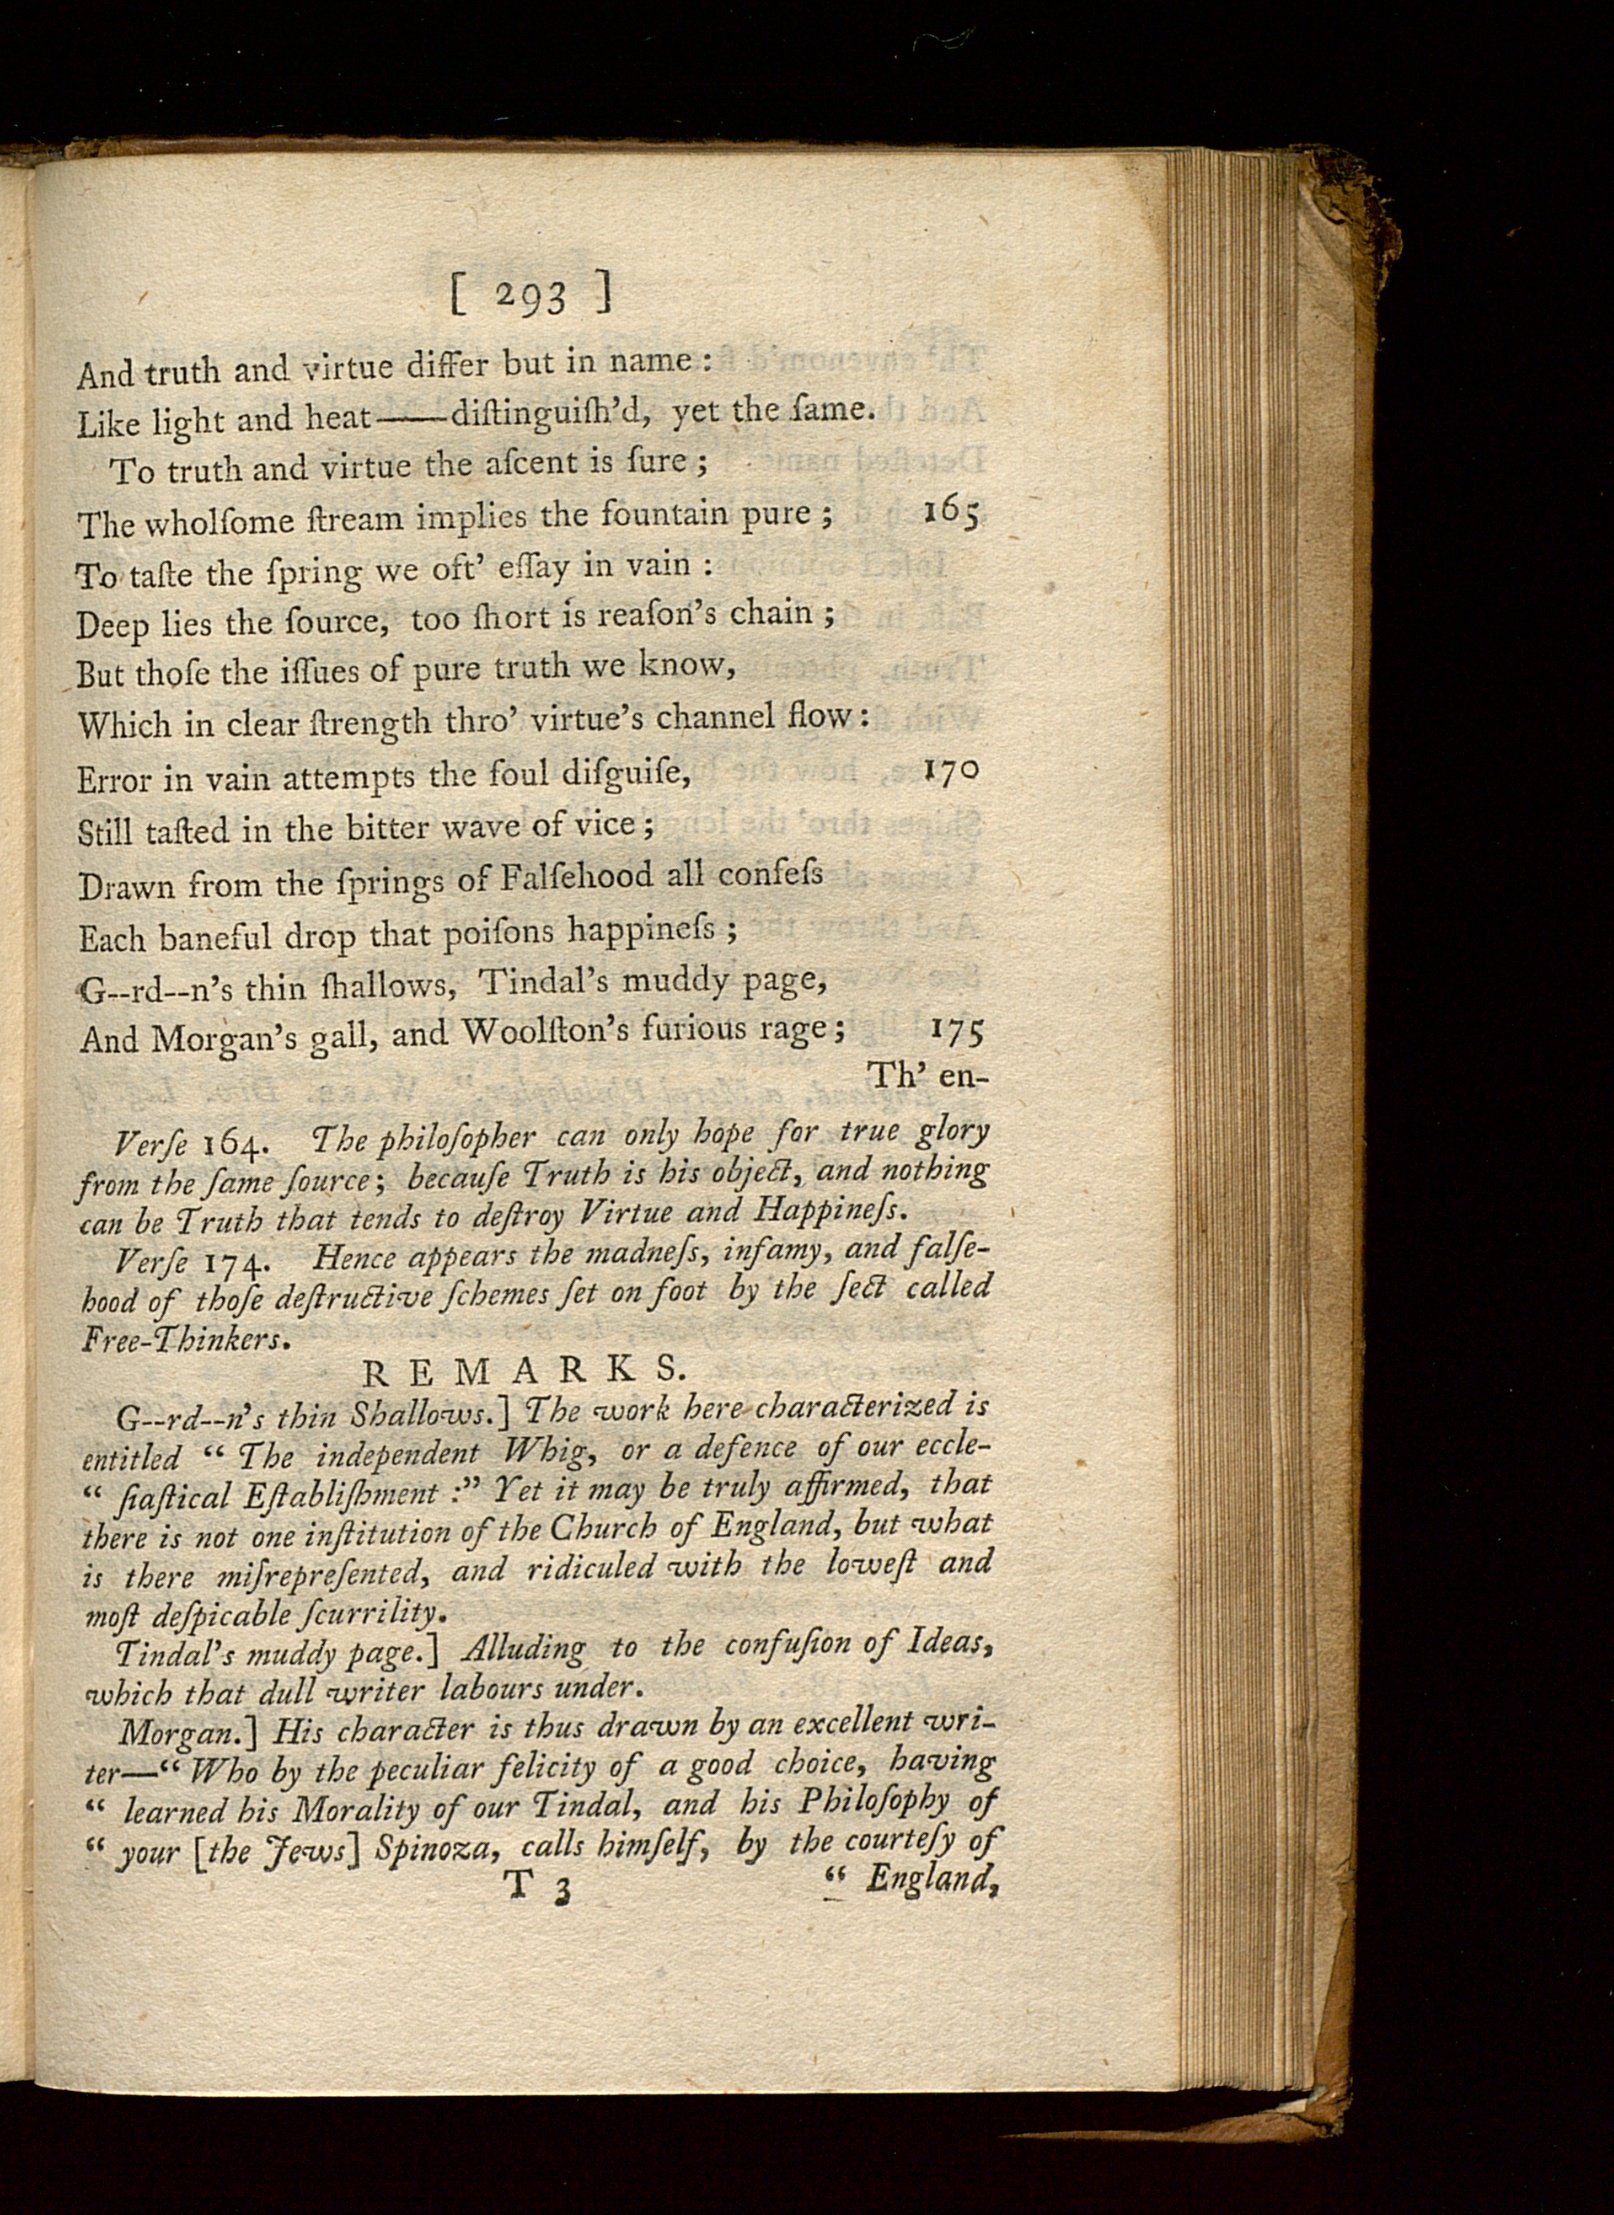 [ 293 ]
And truth and virtue differ but in name :
Like light and heat——diſtinguiſh'd, yet the ſame.
To truth and virtue the aſcent is ſure ;
The wholſome ſtream implies the fountain pure ; 165
To taſte the ſpring we oft' eſſay in vain :
Deep lies the ſource, too ſhort is reaſon's chain ;
But thoſe the iſſues of pure truth we know,
Which in clear ſtrength thro' virtue's channel flow :
Error in vain attempts the foul diſguiſe, 170
Still taſted in the bitter wave of vice ;
Drawn from the ſprings of Falſehood all confeſs
Each baneful drop that poiſons happineſs ;
G--rd--n's thin ſhallows, Tindal's muddy page,
And Morgan's gall, and Woolſton's furious rage ; 175
Th' en-
Verſe 164. The philoſopher can only hope for true glory
from the ſame ſource; becauſe Truth is his object, and nothing
can be Truth that tends to deſtroy Virtue and Happineſs.
Verſe 174. Hence appears the madneſs, infamy, and falſe-
hood of thoſe deſtructive ſchemes ſet on foot by the ſect called
Free-Thinkers.
REMARKS.
G--rd--n's thin Shallows.] The work here characterized is
entitled “ The independent Whig, or a defence of our eccle-
“ ſiaſtical Eſtabliſhment :” Yet it may be truly affirmed, that
there is not one inſtitution of the Church of England, but what
is there miſrepreſented, and ridiculed with the loweſt and
moſt deſpicable ſcurrility.
Tindal's muddy page.] Alluding to the confuſion of Ideas,
which that dull writer labours under.
Morgan.] His character is thus drawn by an excellent wri-
ter—“ Who by the peculiar felicity of a good choice, having
“ learned his Morality of our Tindal, and his Philoſophy of
“ your [the Jews] Spinoza, calls himſelf, by the courteſy of
T 3 “ England,